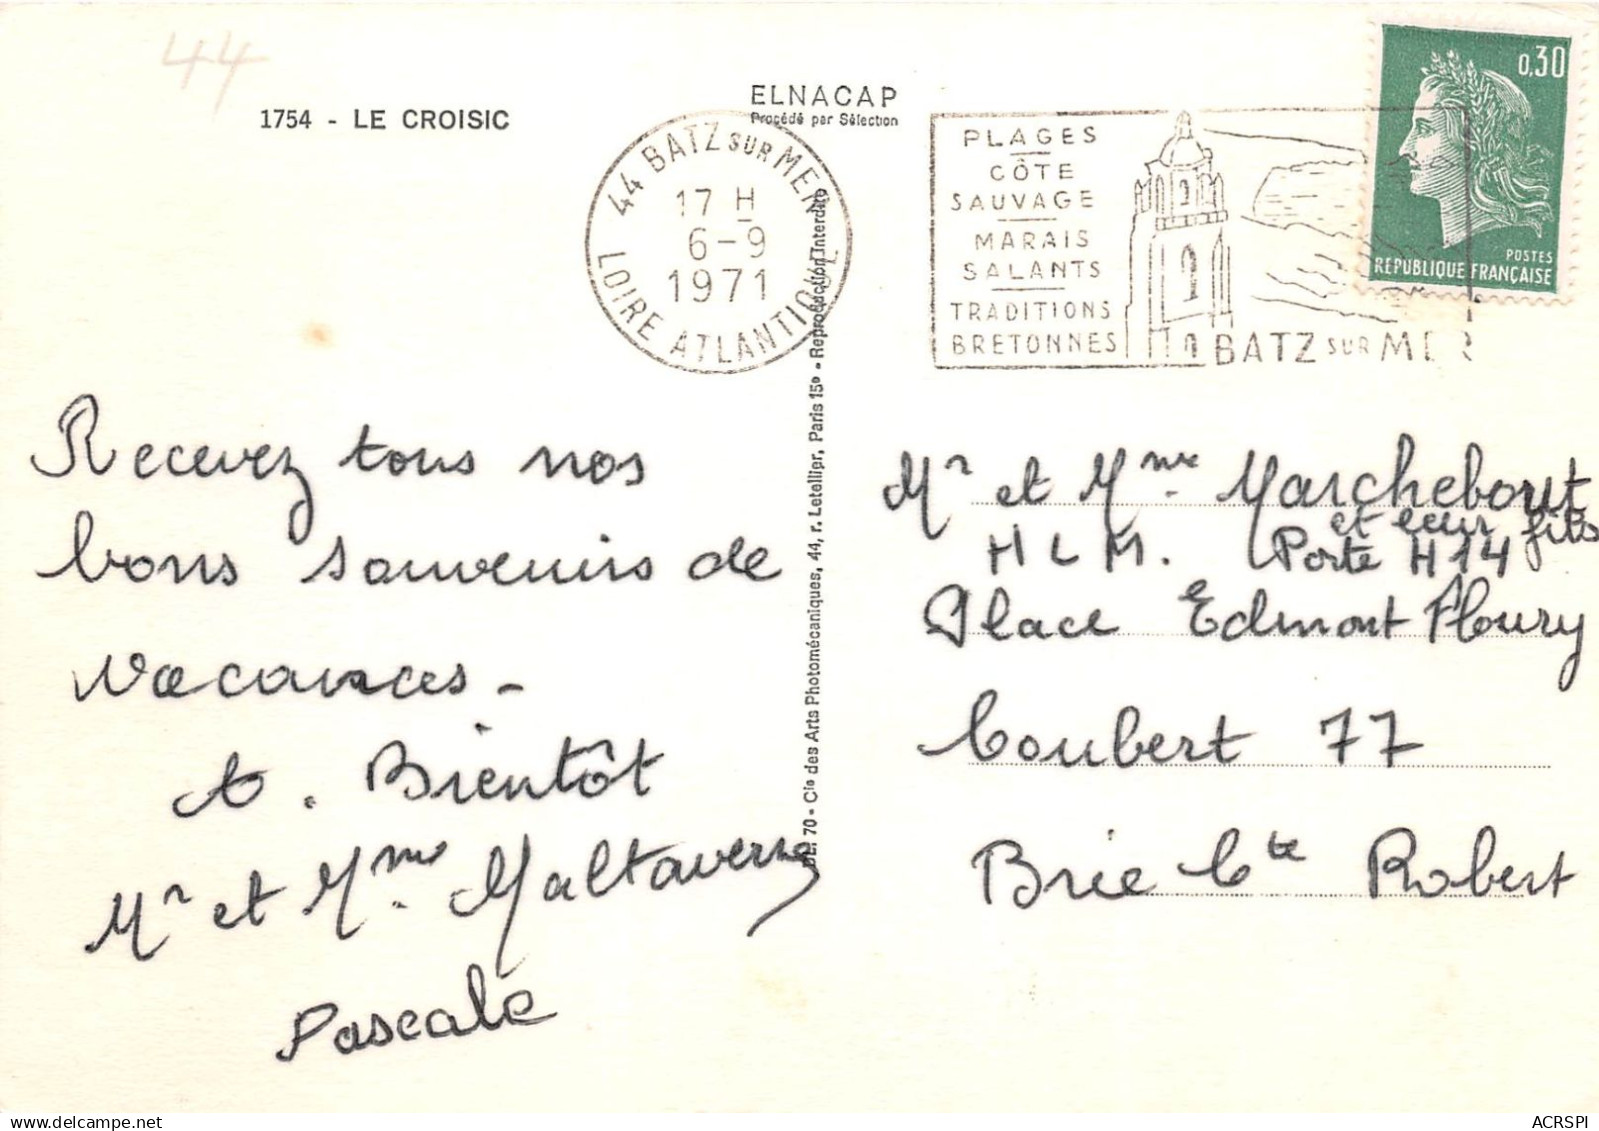 44
1754 - LE CROISIC
ELNACAP
Procédé par Sélection
44 BATZ SUR MER
17 H
6-9
1971
LOIRE ATLANTIQUE
PLAGES
CÔTE
SAUVAGE
MARAIS
SALANTS
TRADITIONS
BRETONNES
BATZ SUR MER
0,30
POSTES
RÉPUBLIQUE FRANÇAISE
DEL 70 - Cie des Arts Photomécaniques, 44, r. Letellier, Paris 15e - Reproduction Interdite
Recevez tous nos
bons souvenirs de
vacances -
A. Bientôt
Mr et Mme Maltaverne
Pascale
Mr et Mme Marchebout
et leur fils
HLM. Porte H14
Place Edmont Fleury
Coubert 77
Brie Cte Robert
ACRSPI